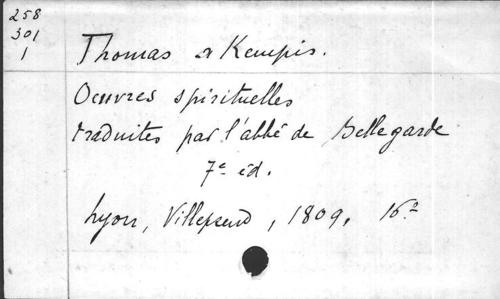 258
301
1
Thomas a Kempis.
Oeuvres spirituelles
traduites par l'abbé de Bellegarde
7e éd.
Lyon, , 1809, 16°